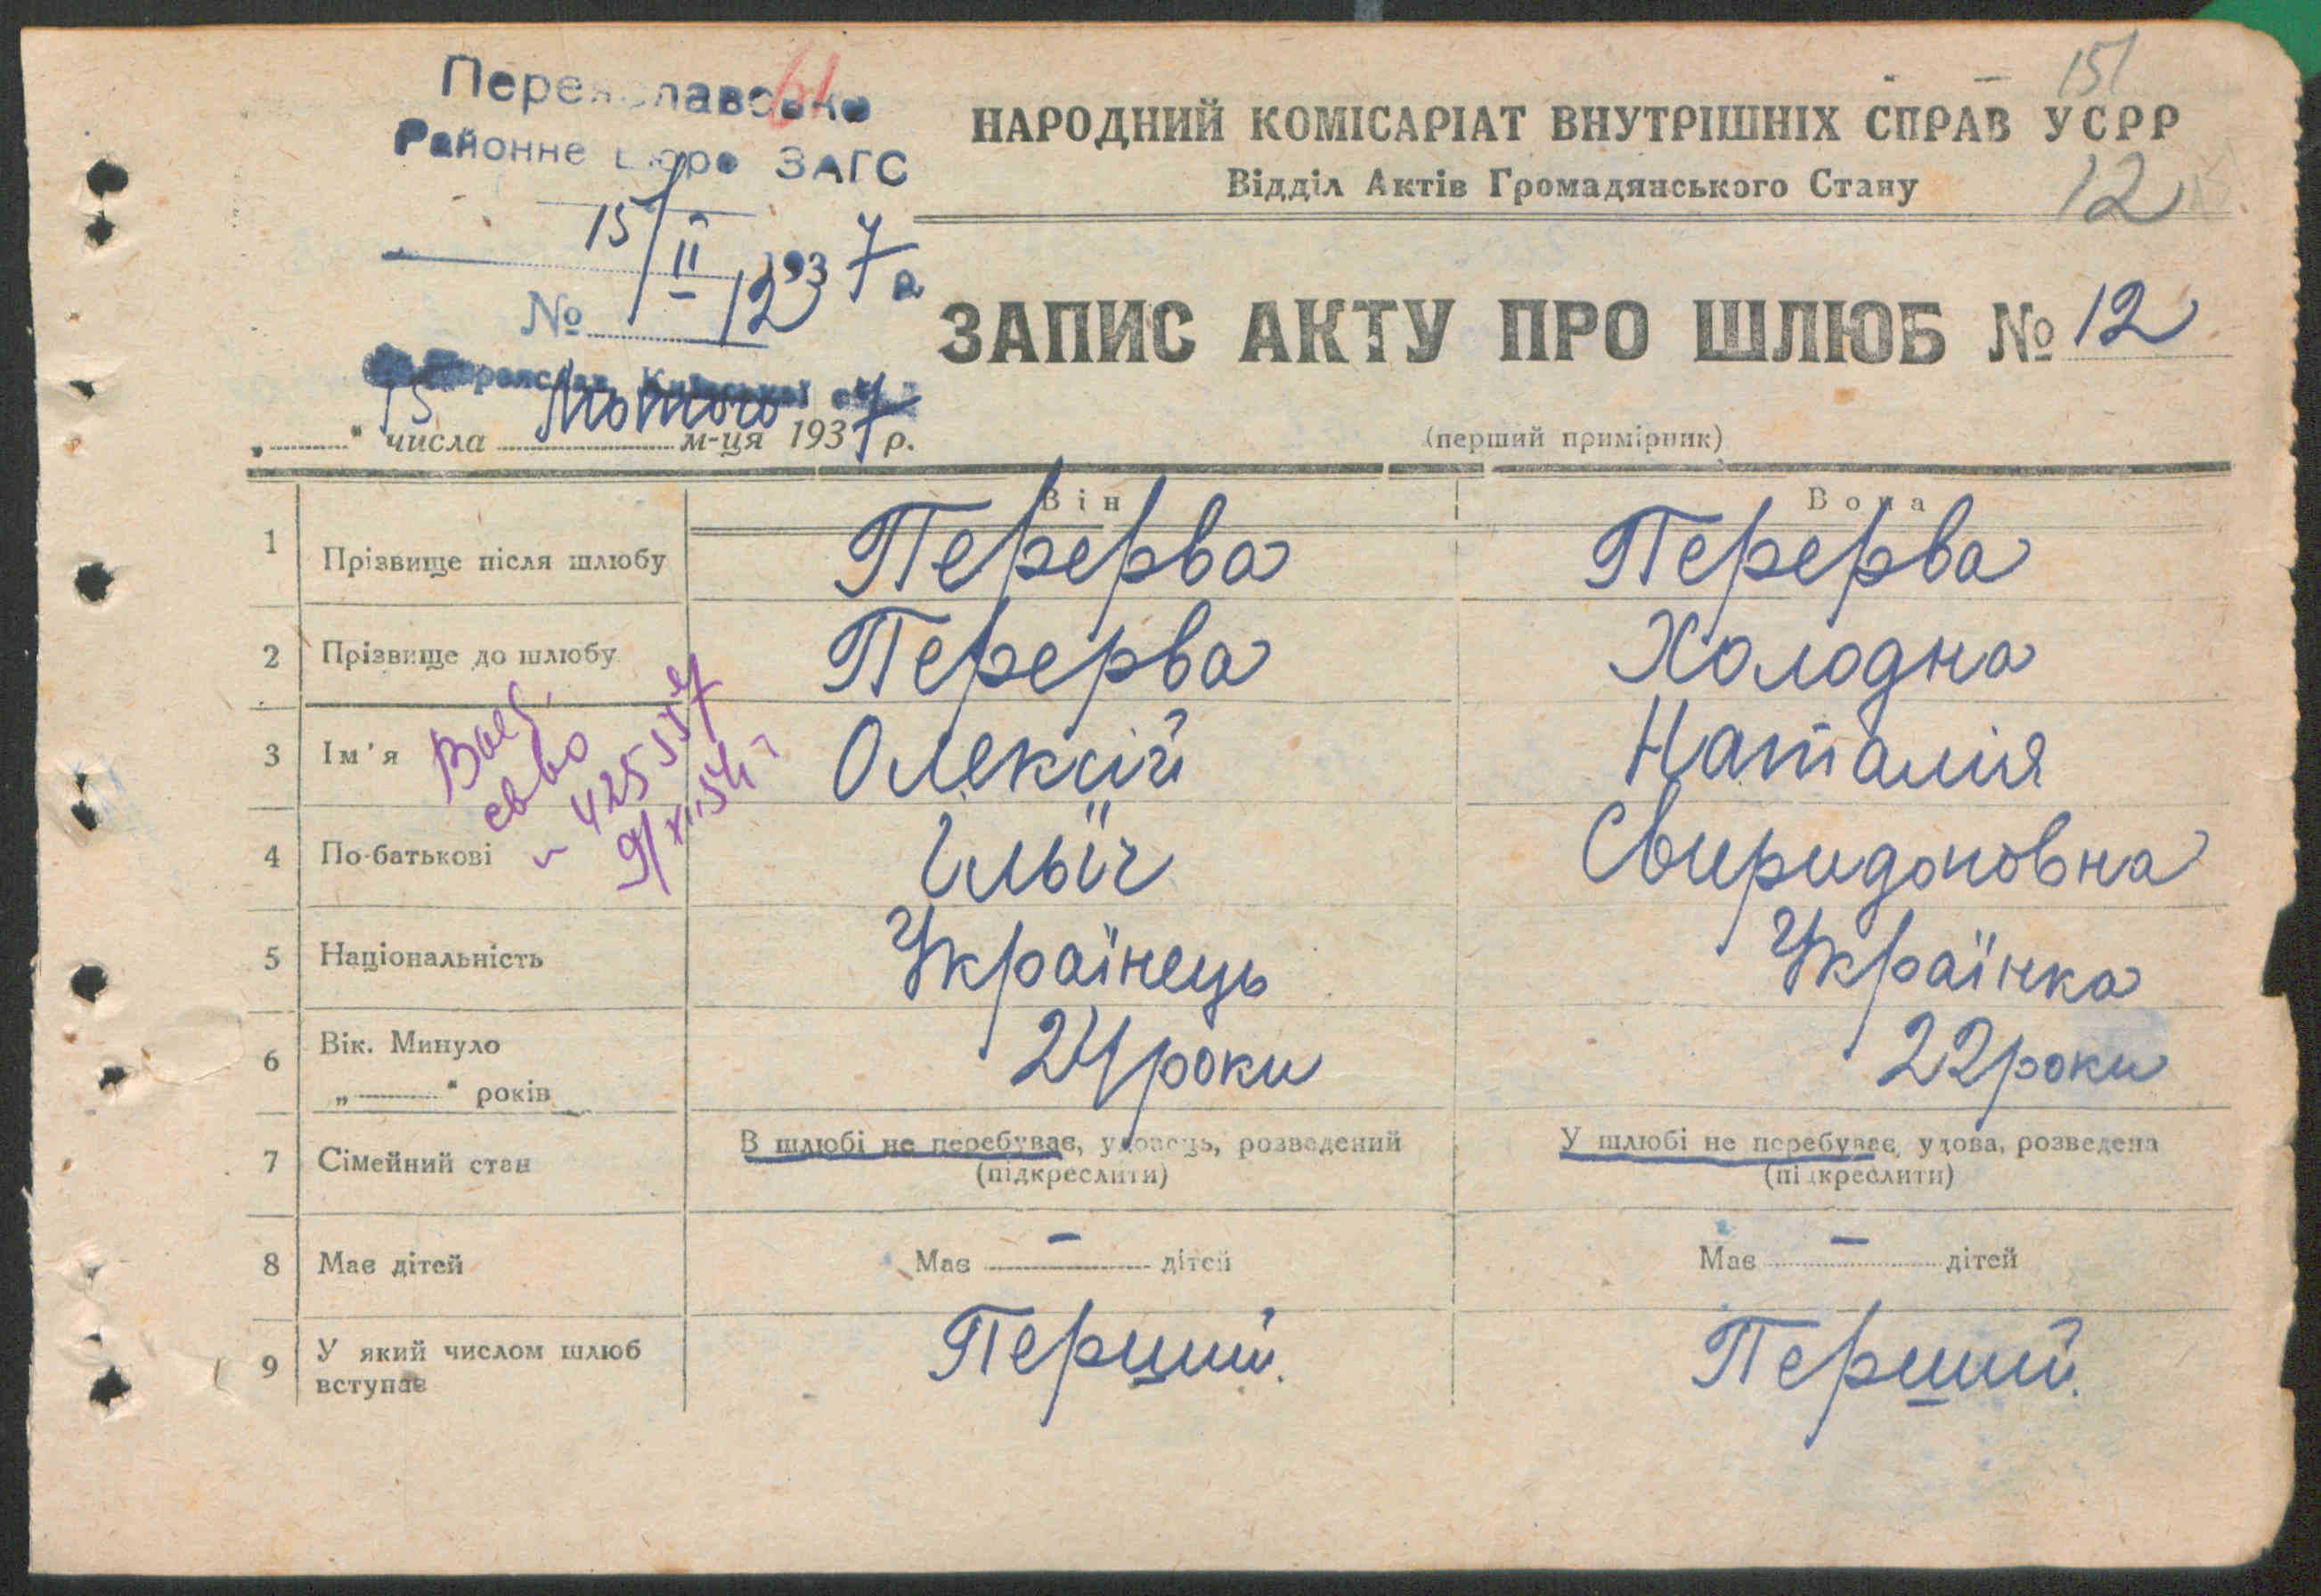 Переяславське
61
Районне Бюро ЗАГС
15/II 1937 р
№ 12
151
НАРОДНИЙ КОМІСАРІАТ ВНУТРІШНІХ СПРАВ УСРР
Відділ Актів Громадянського Стану
12
ЗАПИС АКТУ ПРО ШЛЮБ № 12
(перший примірник)
Переяслав Київської обл.
„15“ числа Лютого м-ця 1937 р.
Він Вона
1 Прізвище після шлюбу Перерва Перерва
2 Прізвище до шлюбу Перерва Холодна
3 Ім'я Олексій Наталія
4 По-батькові Ільїч Свиридоновна
5 Національність Українець Українка
6 Вік. Минуло „ “ років 24 роки 22 роки
7 Сімейний стан В шлюбі не перебуває, удовець, розведений (підкреслити) У шлюбі не перебуває, удова, розведена (підкреслити)
8 Має дітей Має – дітей Має – дітей
9 У який числом шлюб вступає Перший. Перший.
9/XI.54 г